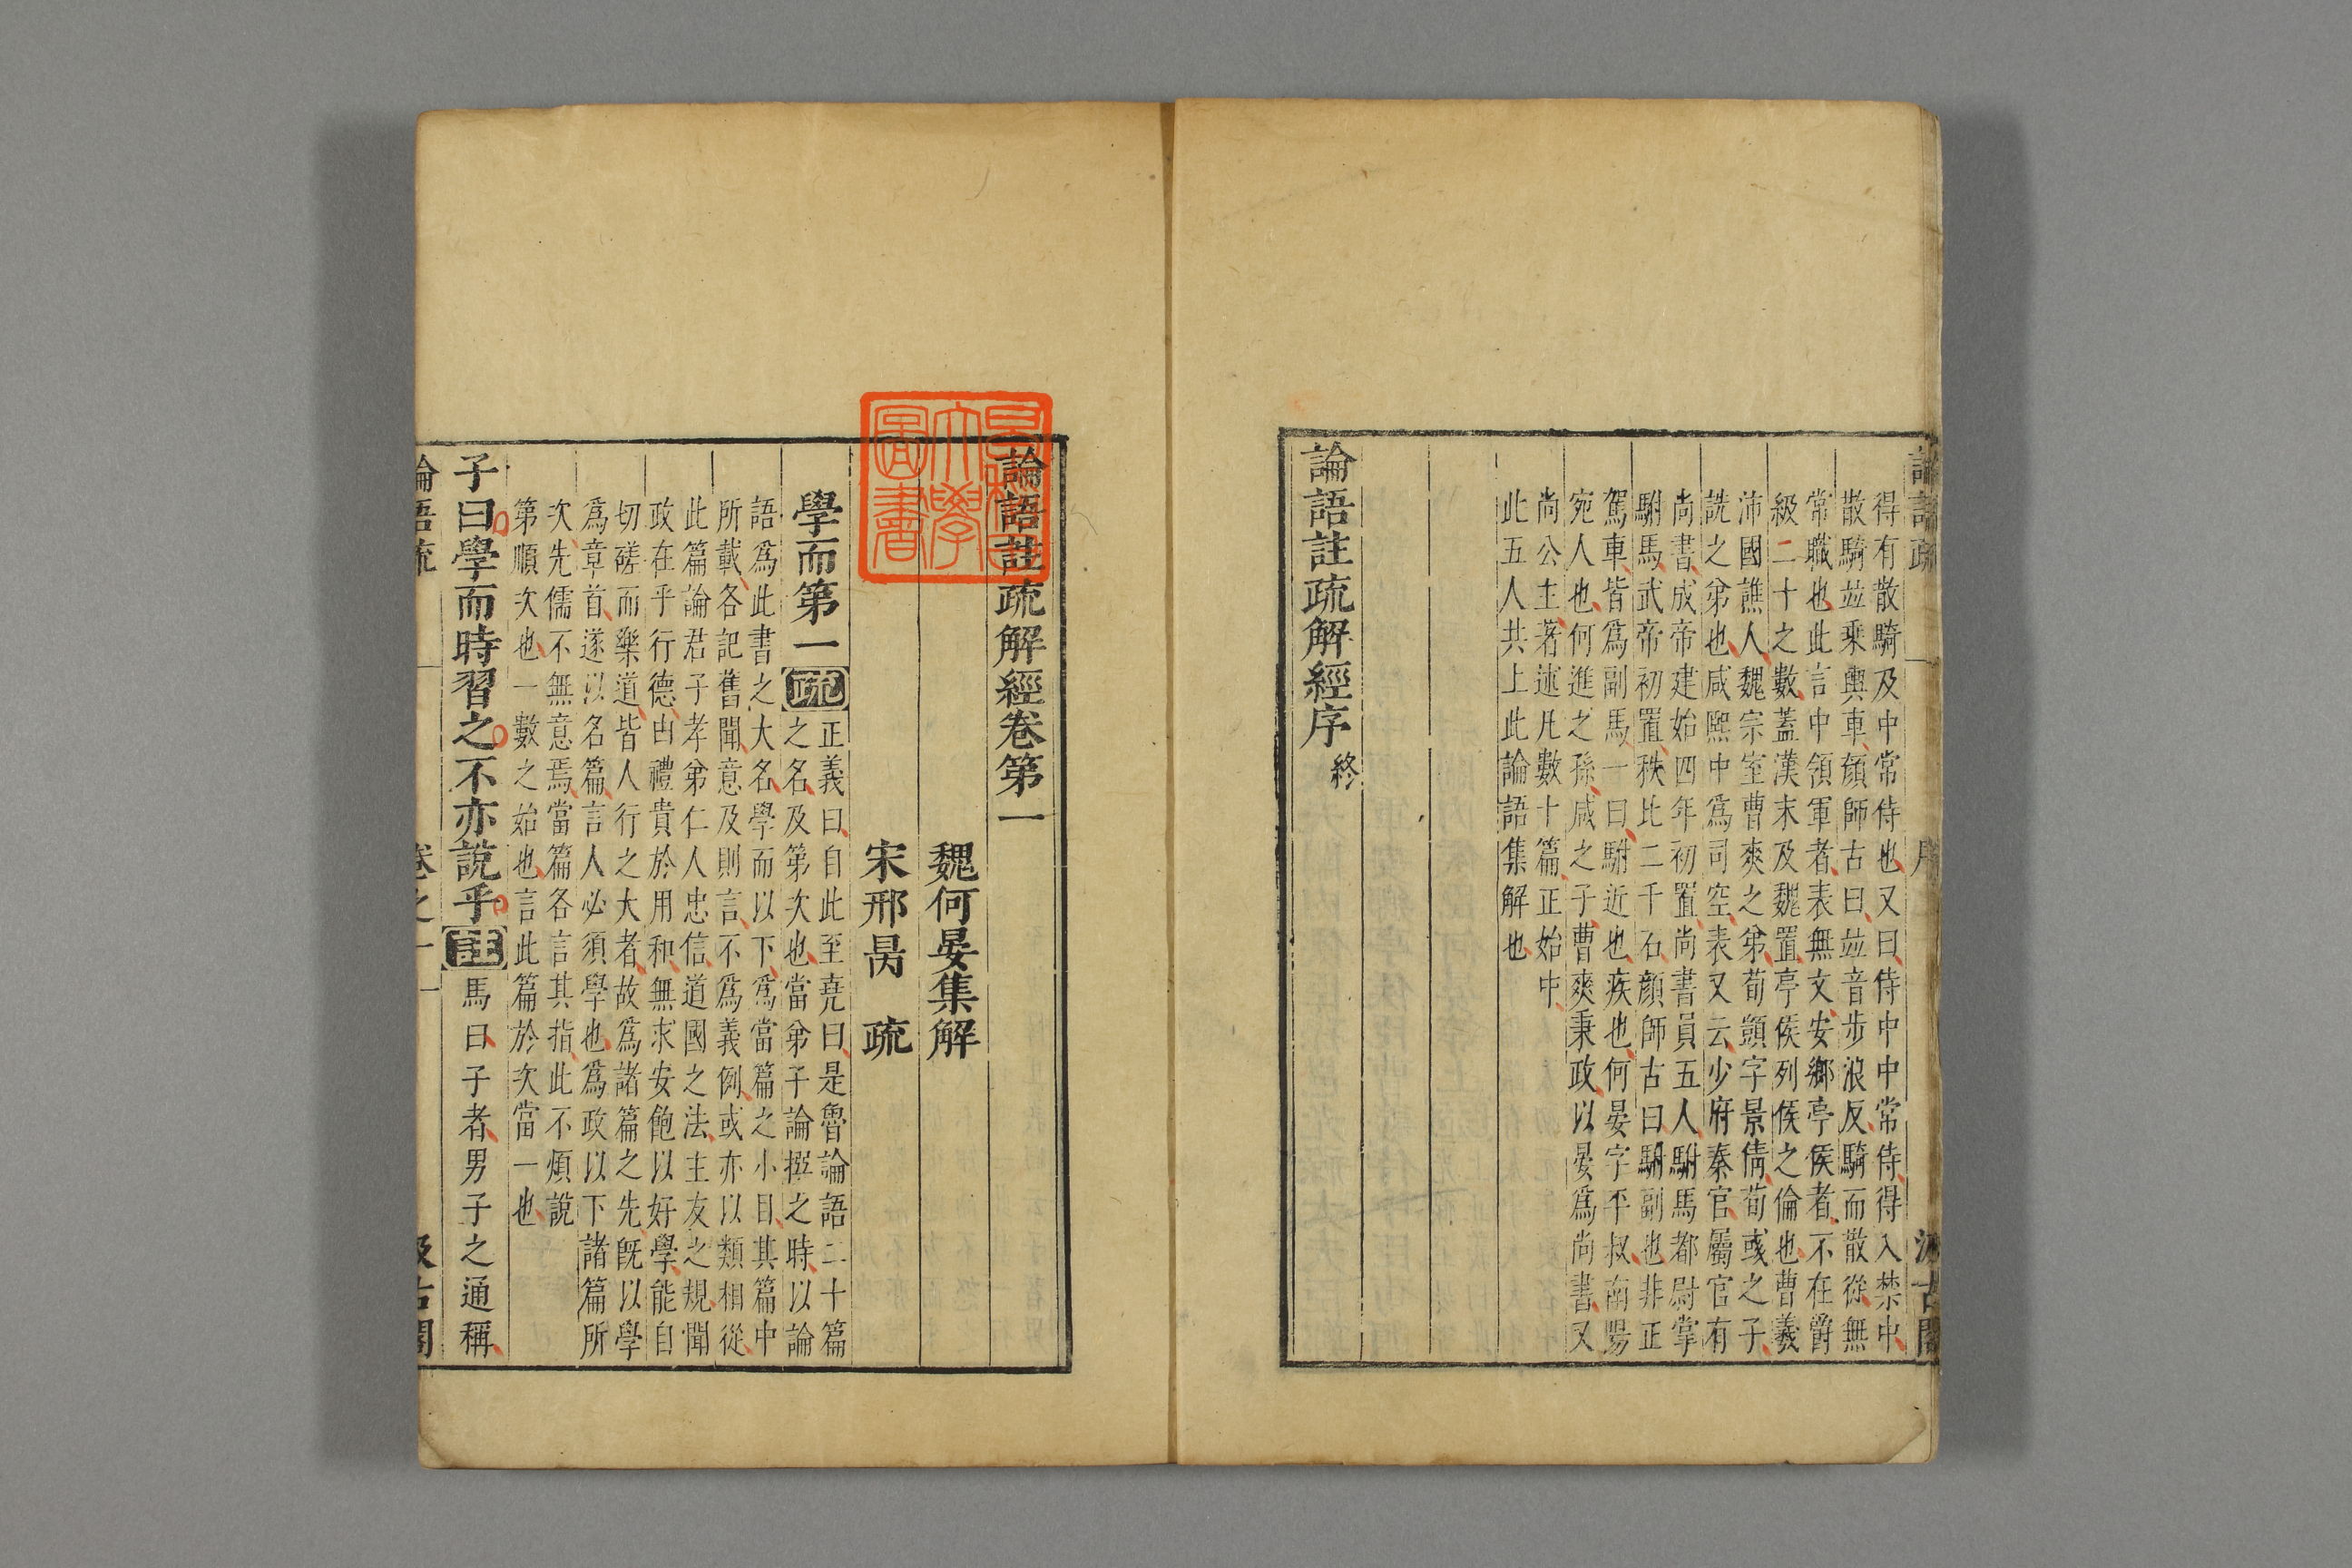 論語疏
序
汲古閣
得有散騎及中常侍也又曰侍中中常侍得入禁中
散騎並乘輿車顏師古曰並音步浪反騎而散從無
常職也此言中領軍者表無文安鄉亭侯者不在爵
級二十之數蓋漢末及魏置亭侯列侯之倫也曹羲
沛國譙人魏宗室曹爽之弟荀顗字景倩荀彧之子
詵之弟也咸熙中爲司空表又云少府秦官屬官有
尚書成帝建始四年初置尚書員五人駙馬都尉掌
駙馬武帝初置秩比二千石顏師古曰駙副也非正
駕車皆爲副馬一曰駙近也疾也何晏字平叔南陽
宛人也何進之孫咸之子曹爽秉政以晏爲尚書又
尚公主著述凡數十篇正始中
此五人共上此論語集解也
論語註疏解經序終
論語註疏解經卷第一
魏何晏集解
宋邢昺 疏
學而第一疏正義曰自此至堯曰是魯論語二十篇
之名及第次也當弟子論撰之時以論
語爲此書之大名學而以下爲當篇之小目其篇中
所載各記舊聞意及則言不爲義例或亦以類相從
此篇論君子孝弟仁人忠信道國之法主友之規聞
政在乎行德由禮貴於用和無求安飽以好學能自
切磋而樂道皆人行之大者故爲諸篇之先既以學
爲章首遂以名篇言人必須學也爲政以下諸篇所
次先儒不無意焉當篇各言其指此不煩說
第順次也一數之始也言此篇於次當一也
子曰學而時習之不亦說乎註馬曰子者男子之通稱
論語疏
卷之一
汲古閣